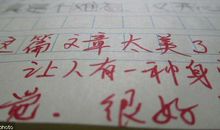 这篇文章太美了
让人有一种身
觉. 很好
Photo